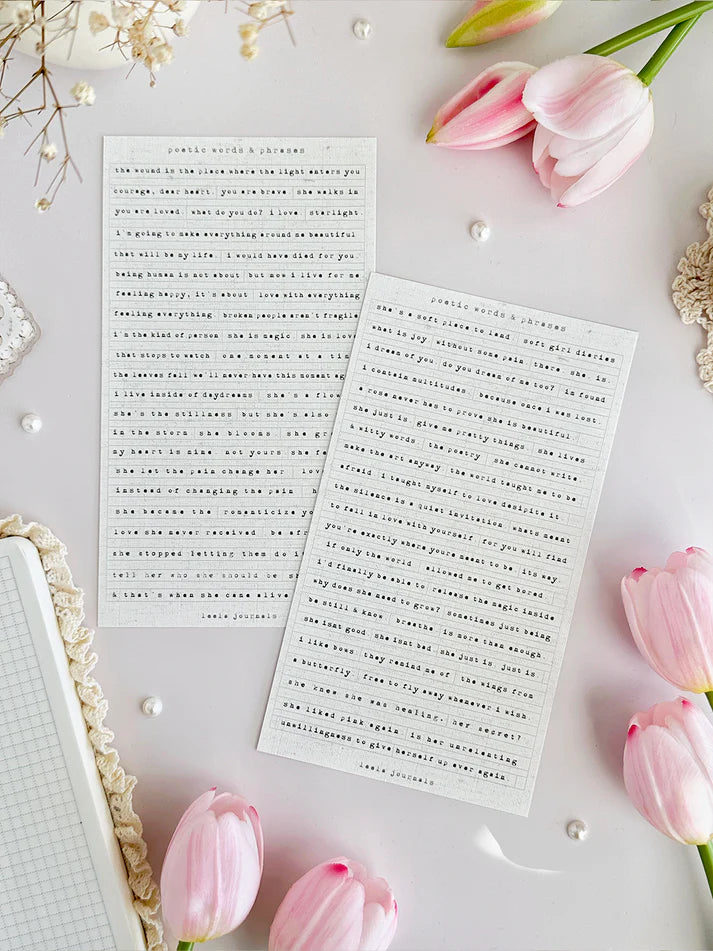 poetic words & phrases
the wound is the place where the light enters you
courage, dear heart. you are brave. she walks in
you are loved. what do you do? i love. starlight
i'm going to make everything around me beautiful
that will be my life. i would have died for you
being human is not about but now i live for me
feeling happy, it's about love with everything
feeling everything. broken people aren't fragile
i'm the kind of person she is magic she is lov
that stops to watch one moment at a tim
the leaves fall we'll never have this moment ag
i live inside of daydreams she's a flow
she's the stillness but she's also
in the storm she blooms. she gr
my heart is mine not yours she fe
she let the pain change her lov
instead of changing the pain h
she became the romanticize yo
love she never received be afr
she stopped letting them do i
tell her who she should be sh
& that's when she came alive
laela journals
poetic words & phrases
she's a soft place to land soft girl diaries
what is joy without some pain there she is
i dream of you do you dream of me too? im found
i contain multitudes because once i was lost.
a rose never has to prove she is beautiful.
she just is give me pretty things she lives
& witty words the poetry she cannot write
make the art anyway the world taught me to be
afraid i taught myself to love despite it
the silence is a quiet invitation whats meant
to fall in love with yourself for you will find
you're exactly where youre meant to be its way.
if only the world allowed me to get bored
i'd finally be able to release the magic inside
why does she need to grow? sometimes just being
be still & know breathe is more than enough
she isnt good she isnt bad she just is just is
i like bows they remind me of the wings from
a butterfly free to fly away whenever i wish.
she knew she was healing. her secret?
she liked pink again is her unrelenting
unwillingness to give herself up ever again.
laela journals